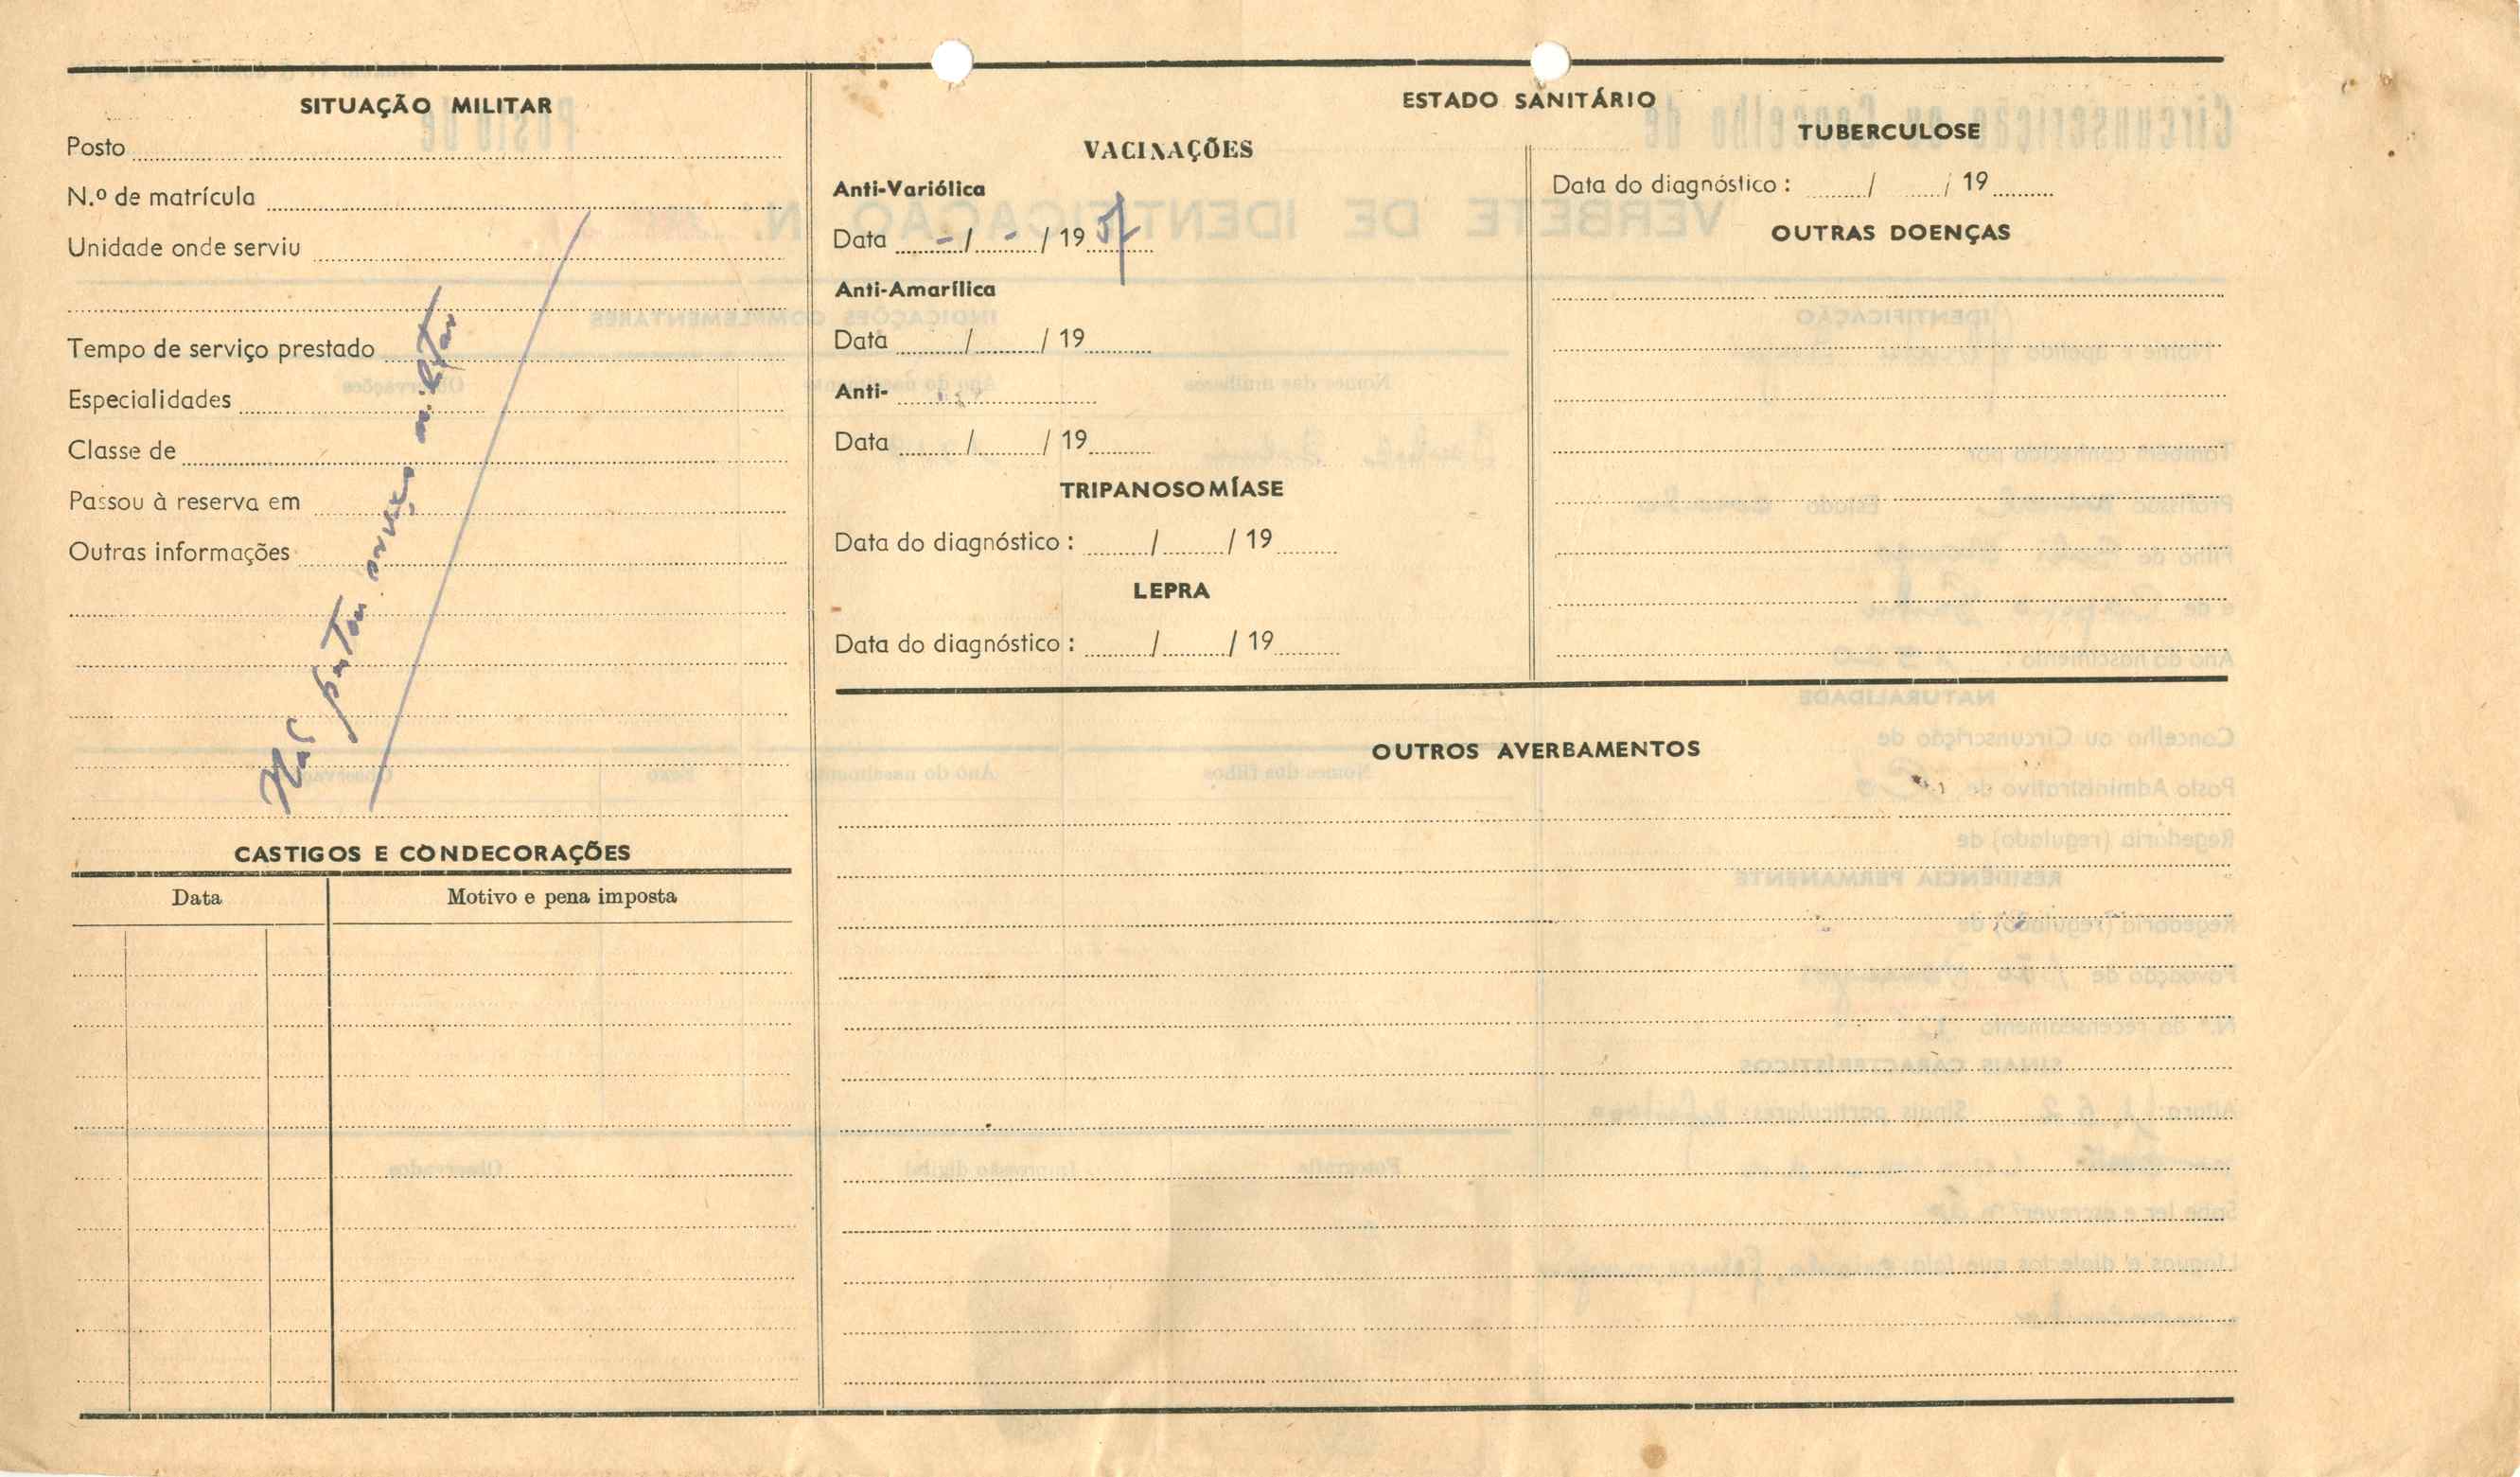 SITUAÇÃO MILITAR
Posto
N.º de matrícula
Unidade onde serviu
Tempo de serviço prestado
Especialidades
Classe de
Passou à reserva em
Outras informações
Não prestou serviço militar
CASTIGOS E CONDECORAÇÕES
Data Motivo e pena imposta
ESTADO SANITÁRIO
VACINAÇÕES
Anti-Variólica
Data - / - / 19 57
Anti-Amarílica
Data / / 19
Anti-
Data / / 19
TRIPANOSOMÍASE
Data do diagnóstico : / / 19
LEPRA
Data do diagnóstico : / / 19
TUBERCULOSE
Data do diagnóstico : / / 19
OUTRAS DOENÇAS
OUTROS AVERBAMENTOS